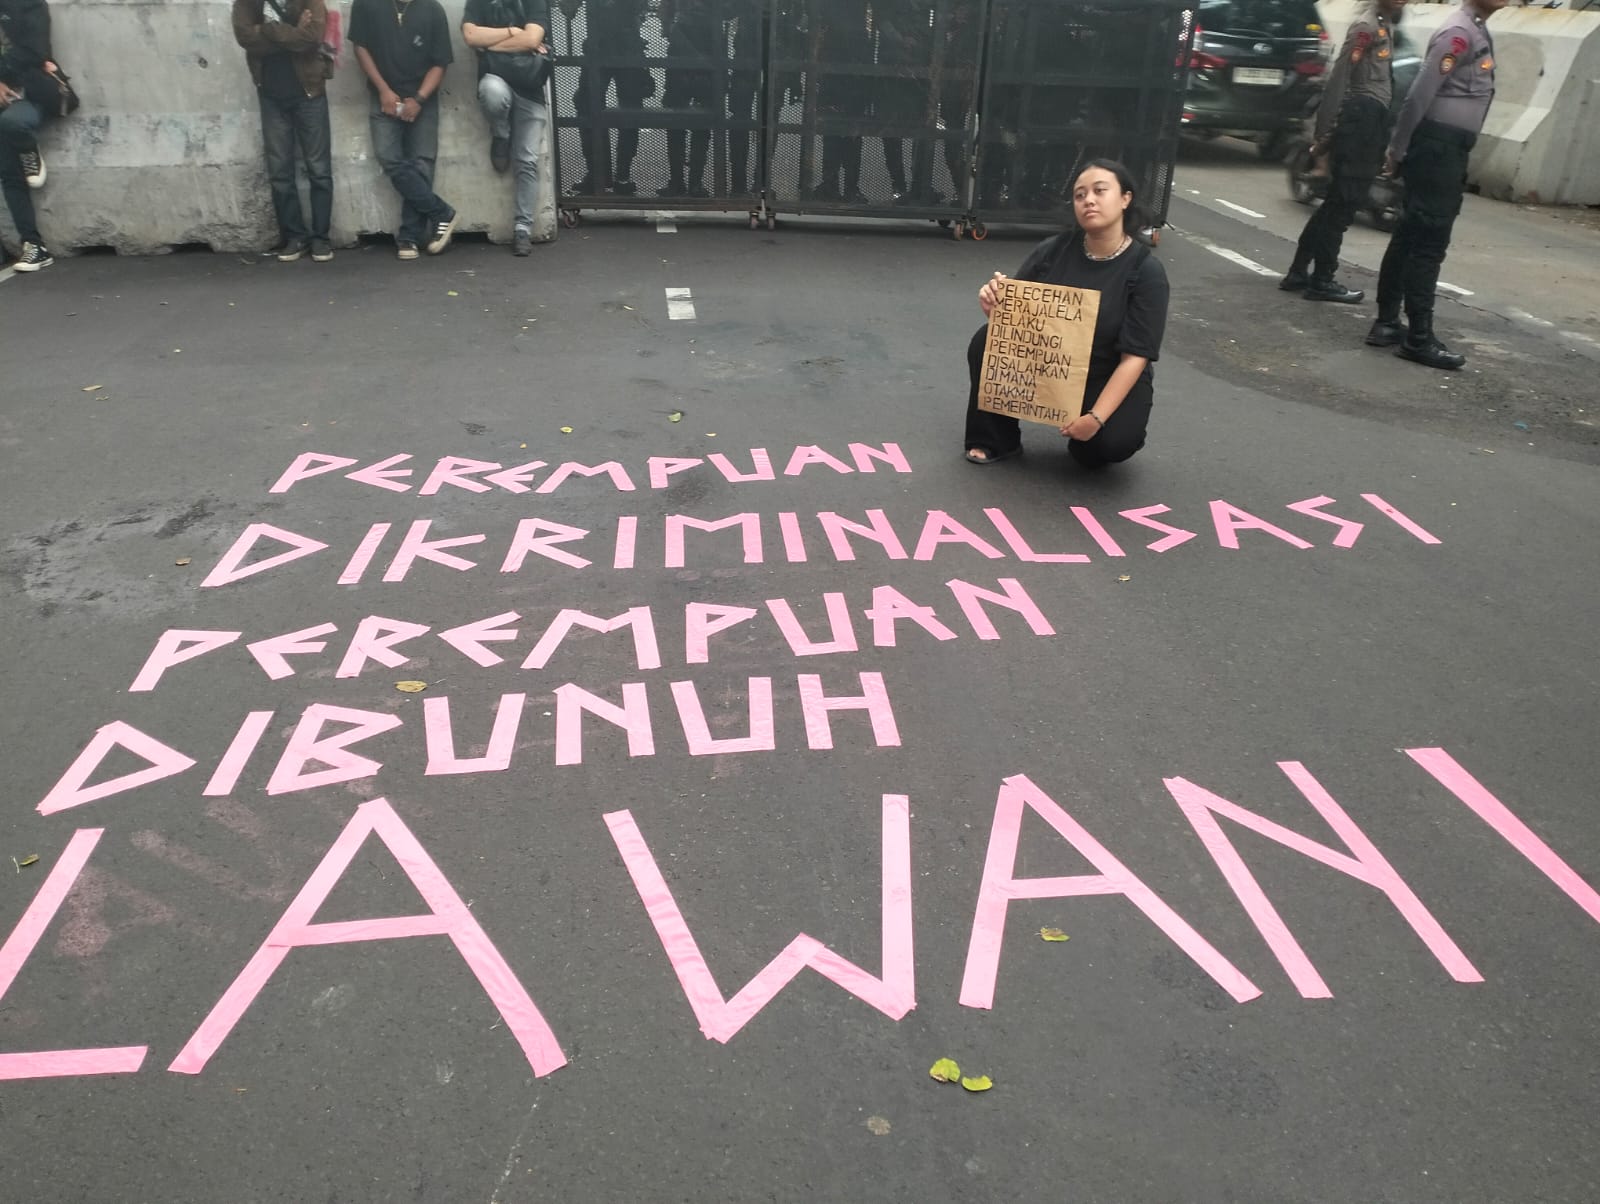 PELECEHAN
MERAJALELA
PELAKU
DILINDUNGI
PEREMPUAN
DISALAHKAN
DIMANA
OTAKMU
PEMERINTAH?
PEREMPUAN
DIKRIMINALISASI
PEREMPUAN
DIBUNUH
LAWAN!